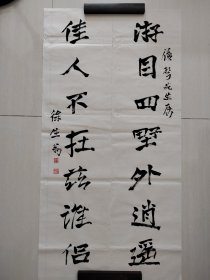 游目四墅外逍遥
佳人不在兹谁侣
徐生翁